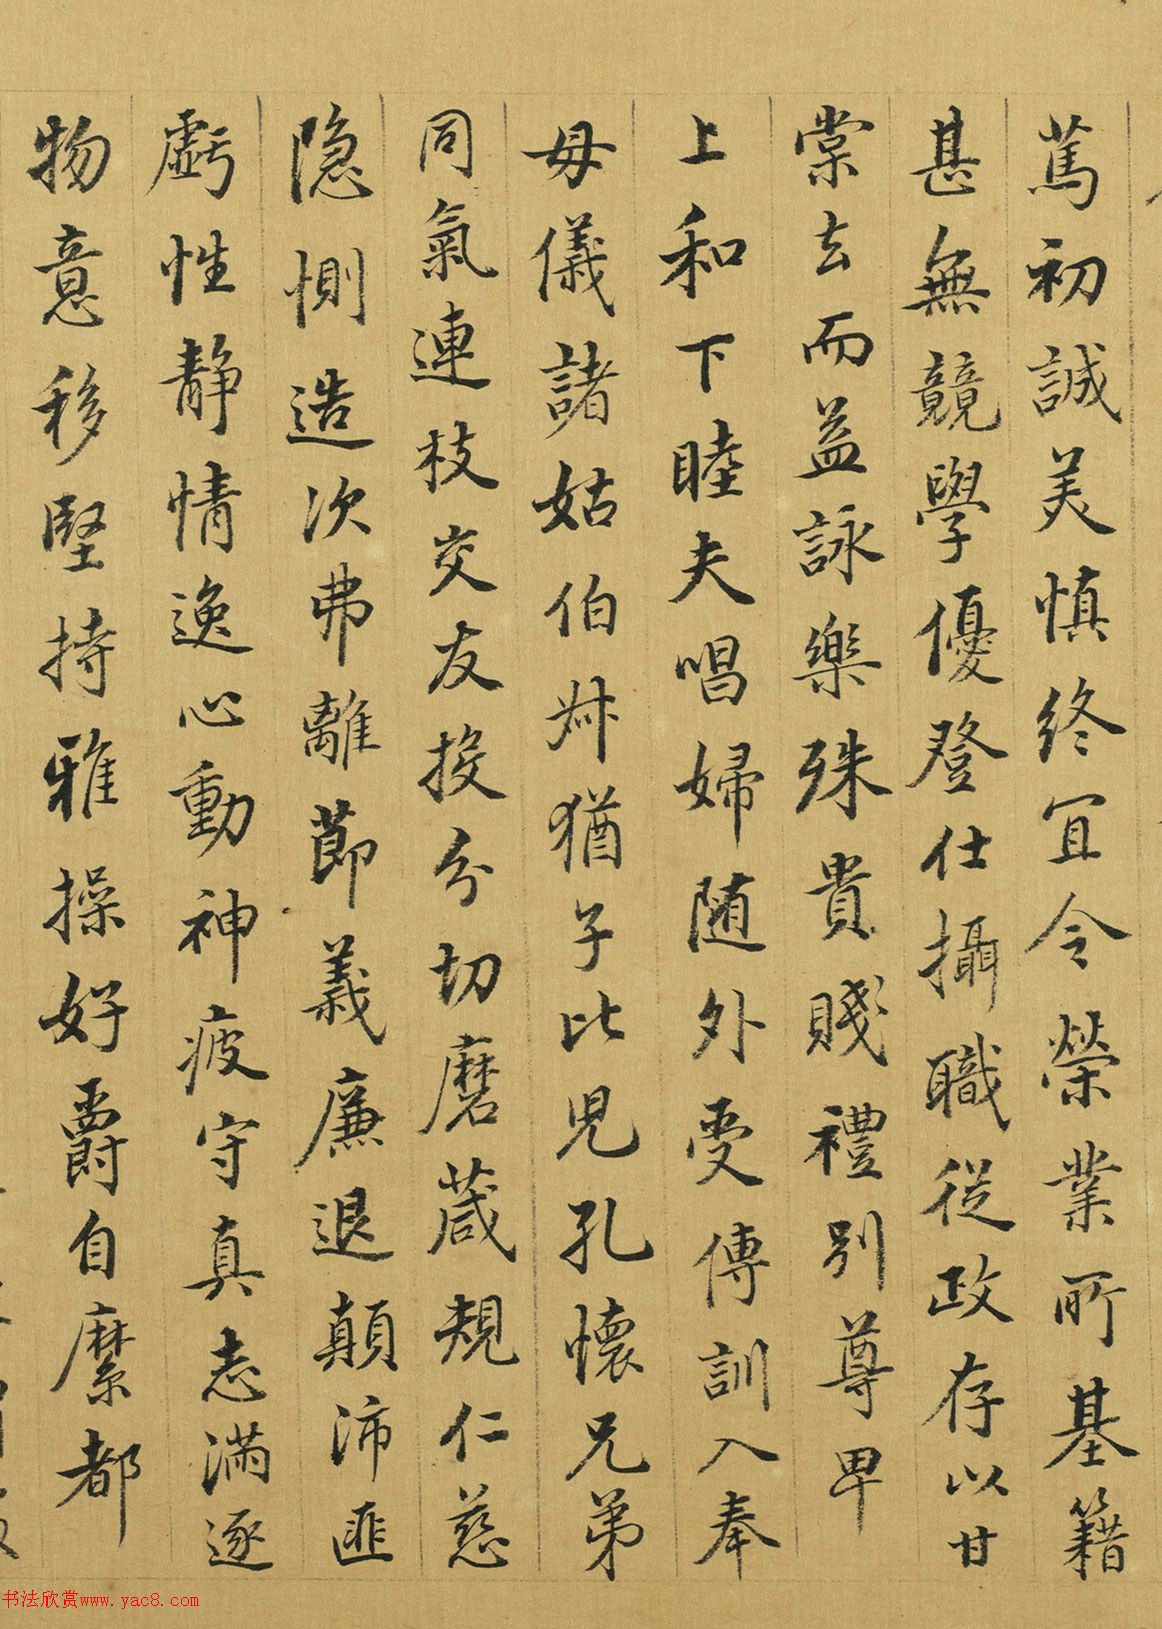 篤初誠美慎終宜令榮業所基籍
甚無競學優登仕攝職從政存以甘
棠去而益詠樂殊貴賤禮別尊卑
上和下睦夫唱婦随外受傅訓入奉
母儀諸姑伯叔猶子比兒孔懷兄弟
同氣連枝交友投分切磨葴規仁慈
隐惻造次弗離節義廉退顛沛匪
虧性静情逸心動神疲守真志满逐
物意移堅持雅操好爵自縻都
书法欣赏www.yac8.com